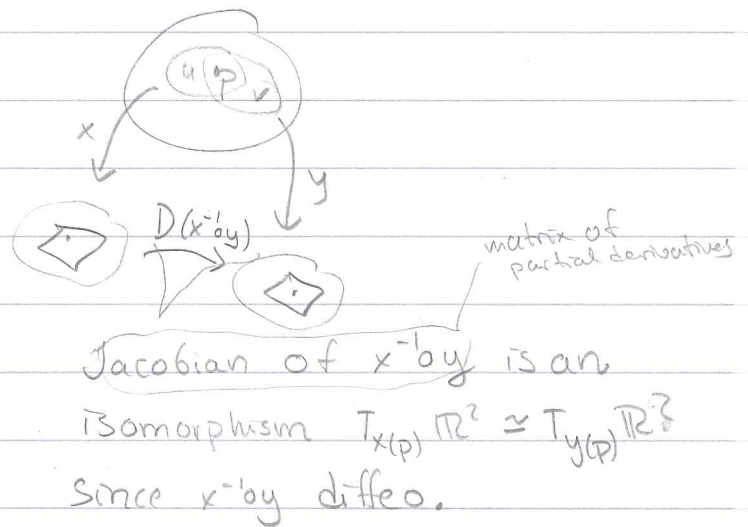 u p v
x
y
D(x⁻¹∘y)
matrix of
partial derivatives
Jacobian of x⁻¹∘y is an
isomorphism T_{x(p)} ℝ² ≃ T_{y(p)} ℝ²
since x⁻¹∘y diffeo.